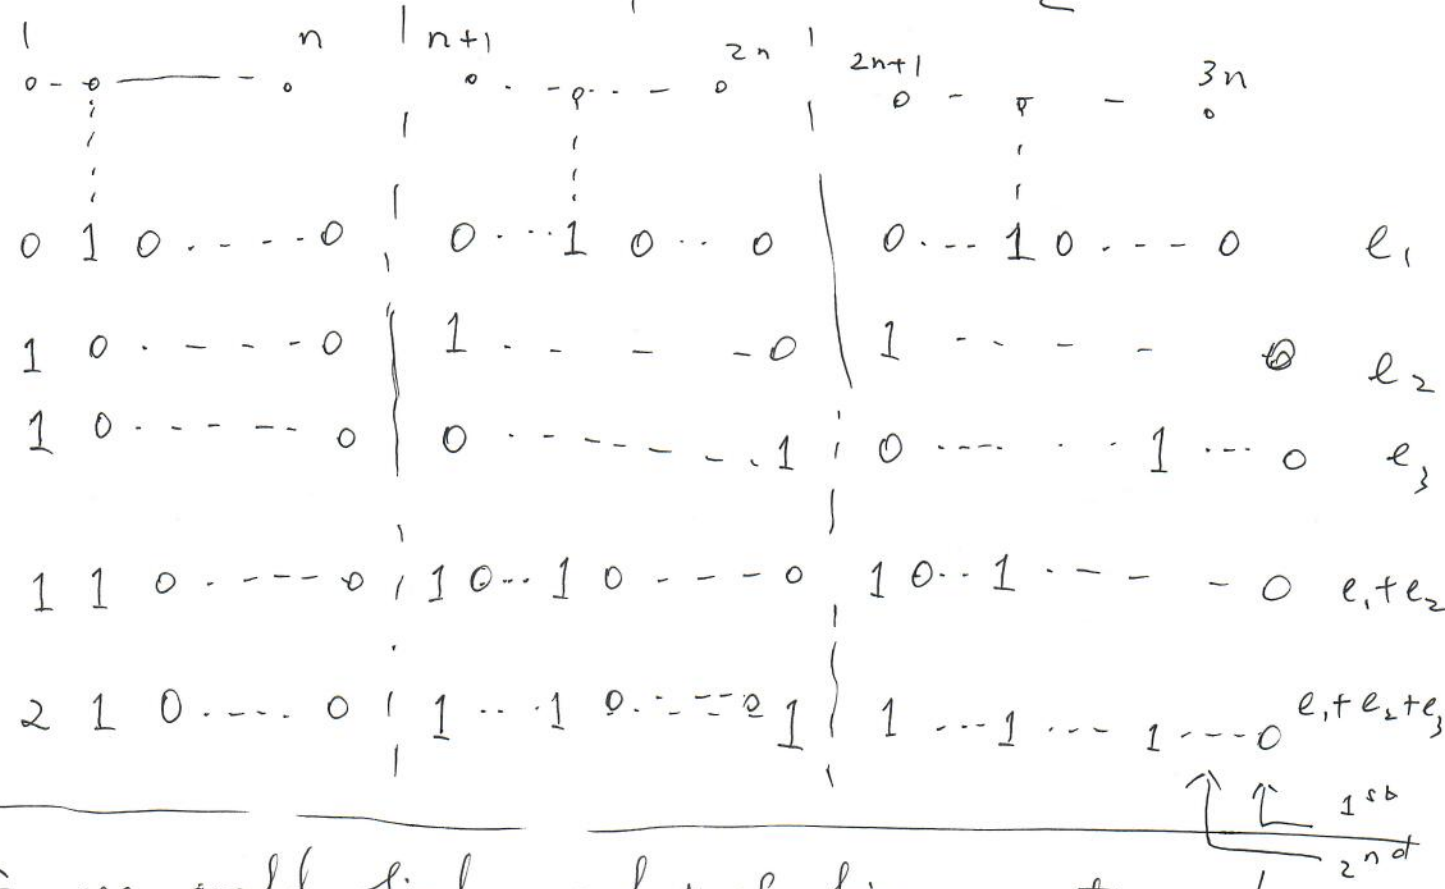 1 n | n+1 2n | 2n+1 3n
0 1 0 . - - - . 0 | 0 . . . 1 0 . . 0 | 0 . - - 1 0 . - - - 0 e₁
1 0 . - - - - 0 | 1 . - - - 0 | 1 - - - - 0 e₂
1 0 . - - - - - 0 | 0 . - - - - - . 1 | 0 . - - - . . 1 . . . 0 e₃
1 1 0 . - - - - 0 | 1 0 . . . 1 0 - - - - 0 | 1 0 . . 1 . - - - 0 e₁+e₂
2 1 0 . - - - . 0 | 1 . . . 1 0 . - - - - 0 1 | 1 . . . 1 . . . 1 . - - 0 e₁+e₂+e₃
1st
2nd